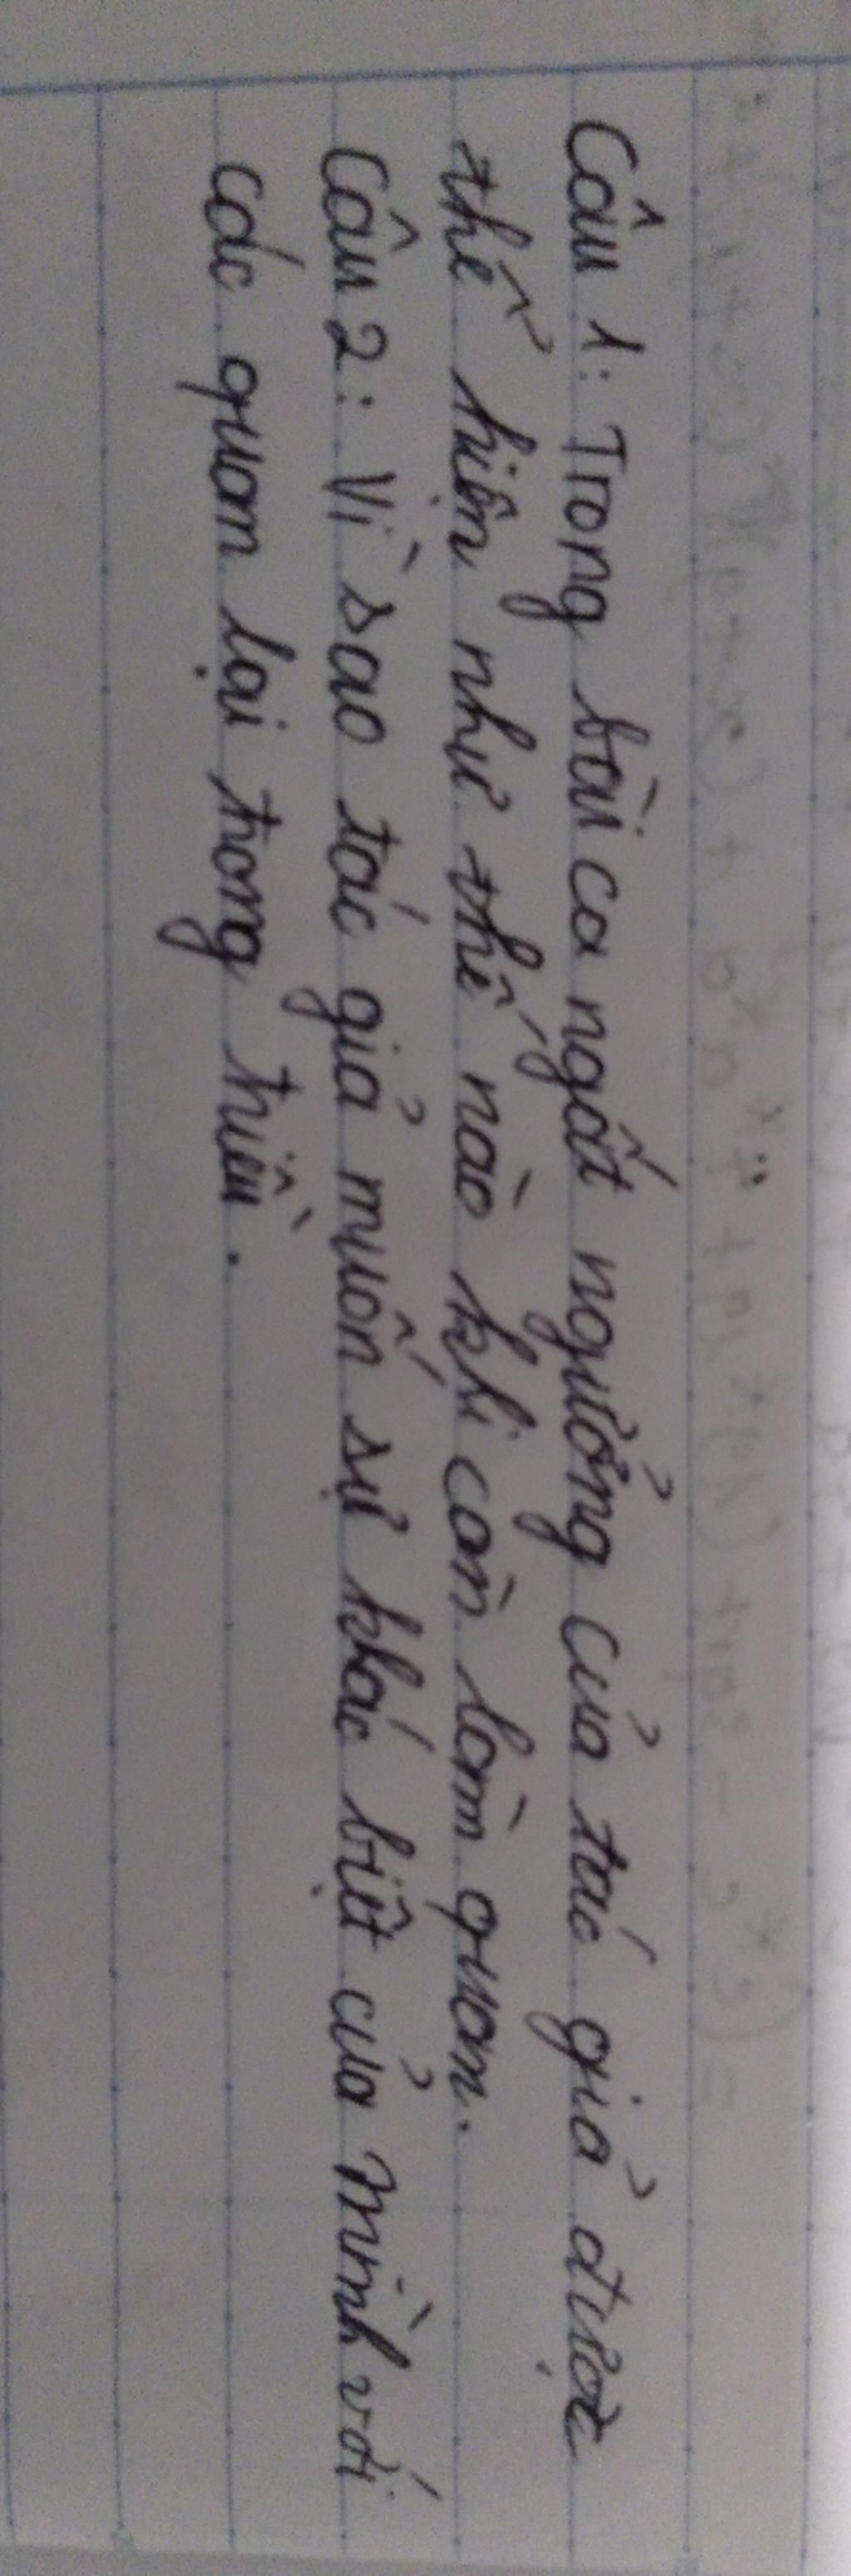 Câu 1: Trong bài ca ngất ngưởng của tác giả được
thể hiện như thế nào khi còn làm quan.
Câu 2: Vì sao tác giả muốn sự khác biệt của mình với
các quan lại trong triều.